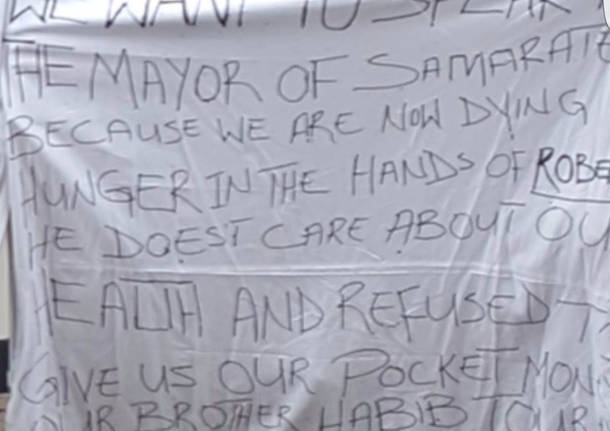 WE WANT TO SPEAK
THE MAYOR OF SAMARATE
BECAUSE WE ARE NOW DYING
HUNGER IN THE HANDS OF ROBE
HE DOEST CARE ABOUT OU
HEALTH AND REFUSED T
GIVE US OUR POCKET MON
OUR BROTHER HABIB TOUR